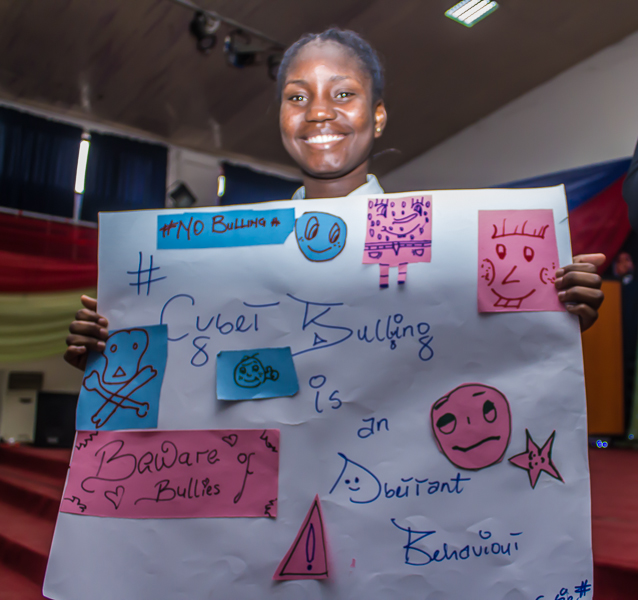 #NO BULLING#
#
Cyber Bulling
is
an
Aberrant
Behaviour
Beware of
Bullies
!
#